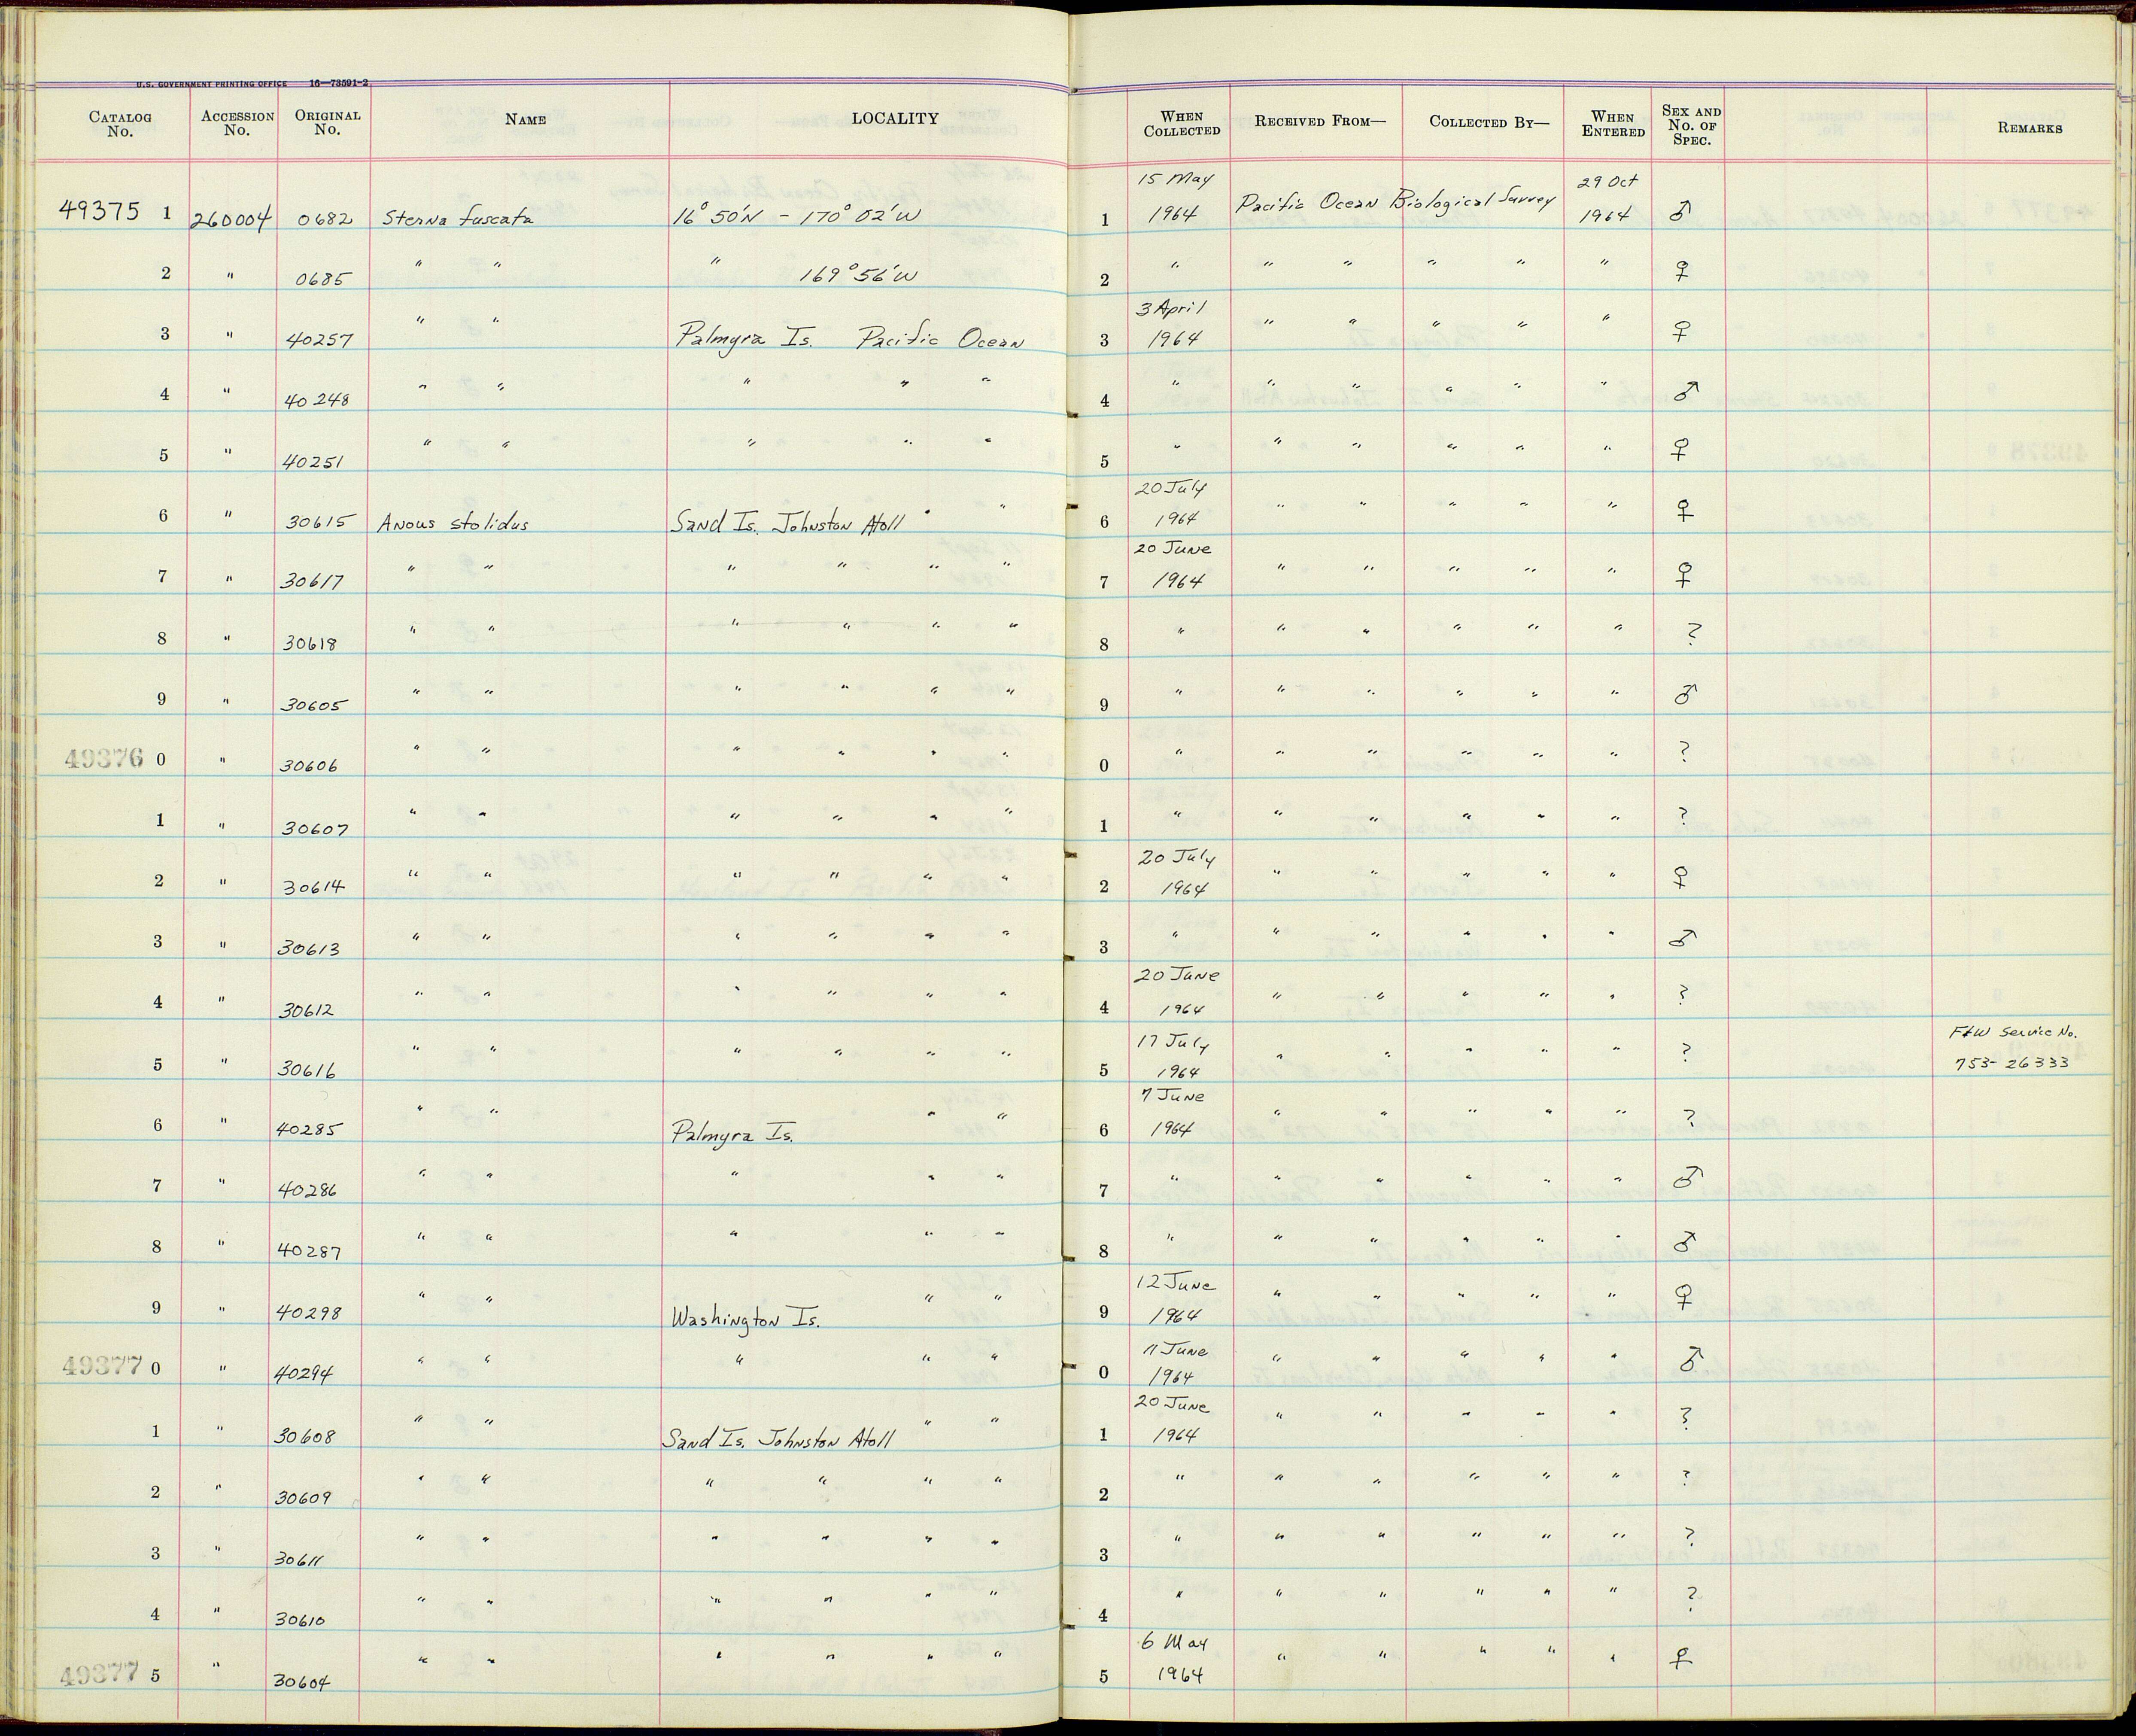 U.S. GOVERNMENT PRINTING OFFICE 16—73591-2
CATALOG No. ACCESSION No. ORIGINAL No. NAME LOCALITY WHEN COLLECTED RECEIVED FROM— COLLECTED BY— WHEN ENTERED SEX AND No. OF SPEC. REMARKS
49375 1 260004 0682 Sterna fuscata 16° 50'N - 170° 02'W 1 15 May 1964 Pacific Ocean Biological Survey 29 Oct 1964 ♂
2 " 0685 " " " 169° 56'W 2 " " " " " " ♀
3 " 40257 " " Palmyra Is. Pacific Ocean 3 3 April 1964 " " " " " ♀
4 " 40248 " " " " " 4 " " " " " " ♂
5 " 40251 " " " " " 5 " " " " " " ♀
6 " 30615 Anous stolidus Sand Is. Johnston Atoll " " 6 20 July 1964 " " " " " ♀
7 " 30617 " " " " " " 7 20 June 1964 " " " " " ♀
8 " 30618 " " " " " " 8 " " " " " " ?
9 " 30605 " " " " " " 9 " " " " " " ♂
49376 0 " 30606 " " " " " " 0 " " " " " " ?
1 " 30607 " " " " " " 1 " " " " " " ?
2 " 30614 " " " " " " 2 20 July 1964 " " " " " ♀
3 " 30613 " " " " " " 3 " " " " " " ♂
4 " 30612 " " " " " " 4 20 June 1964 " " " " " ?
5 " 30616 " " " " " " 5 17 July 1964 " " " " " ? F&W Service No. 753-26333
6 " 40285 " " Palmyra Is. " " 6 7 June 1964 " " " " " ?
7 " 40286 " " " " " 7 " " " " " " ♂
8 " 40287 " " " " " 8 " " " " " " ♂
9 " 40298 " " Washington Is. " " 9 12 June 1964 " " " " " ♀
49377 0 " 40294 " " " " " 0 11 June 1964 " " " " " ♂
1 " 30608 " " Sand Is. Johnston Atoll " " 1 20 June 1964 " " " " " ?
2 " 30609 " " " " " " 2 " " " " " " ?
3 " 30611 " " " " " " 3 " " " " " " ?
4 " 30610 " " " " " " 4 " " " " " " ?
49377 5 " 30604 " " " " " " 5 6 May 1964 " " " " " ♀